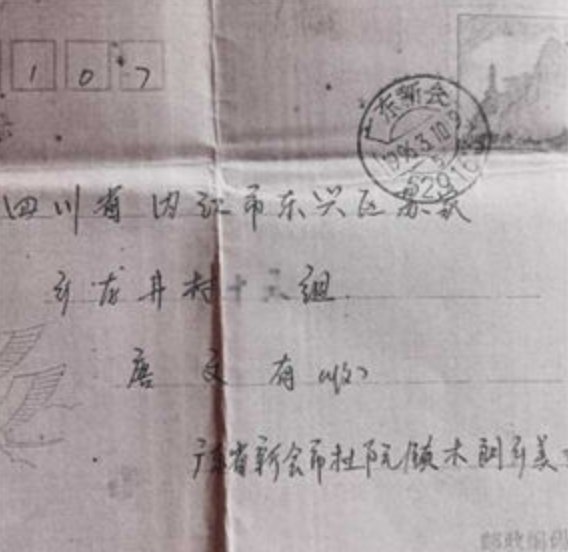 1 0 7
广东新会
1996.3.10
5291
四川省内江市东兴区苏家
乡龙井村十 组
唐文有(收)
广东省新会市杜阮镇木朗乡美
邮政编码